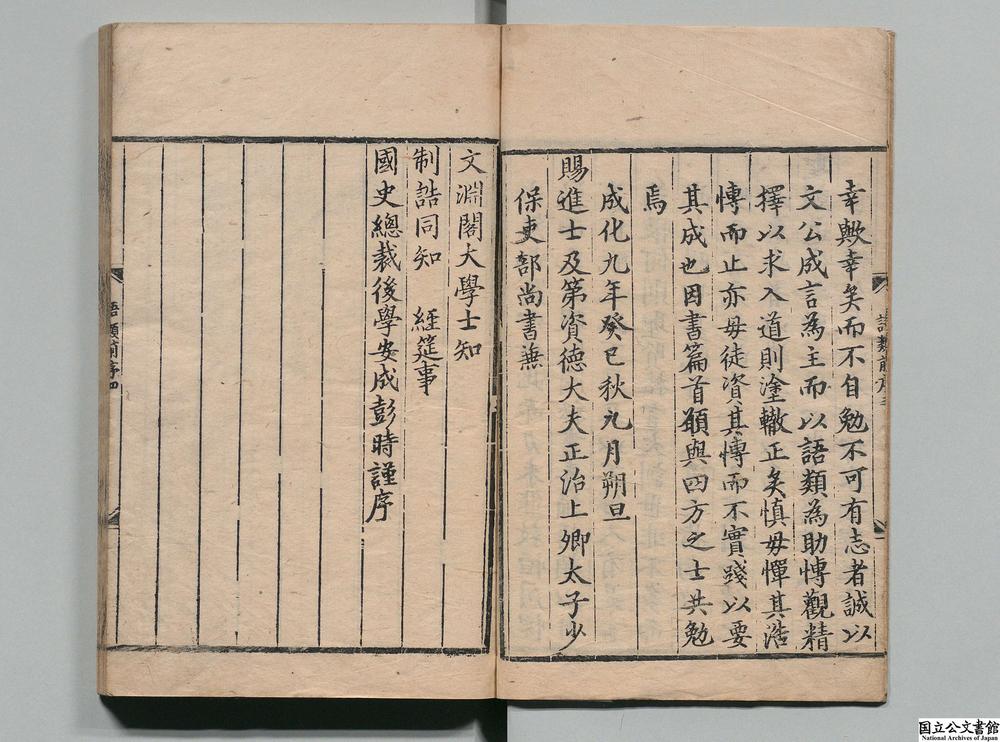 幸歟幸矣而不自勉不可有志者誠以
文公成言為主而以語類為助博觀精
擇以求入道則塗轍正矣慎毋憚其浩
博而止亦毋徒資其博而不實踐以要
其成也因書篇首願與四方之士共勉
焉
成化九年癸巳秋九月朔旦
賜進士及第資德大夫正治上卿太子少
保吏部尚書兼
文淵閣大學士知
制誥同知　經筵事
國史總裁後學安成彭時謹序
語類前序四
国立公文書館
National Archives of Japan